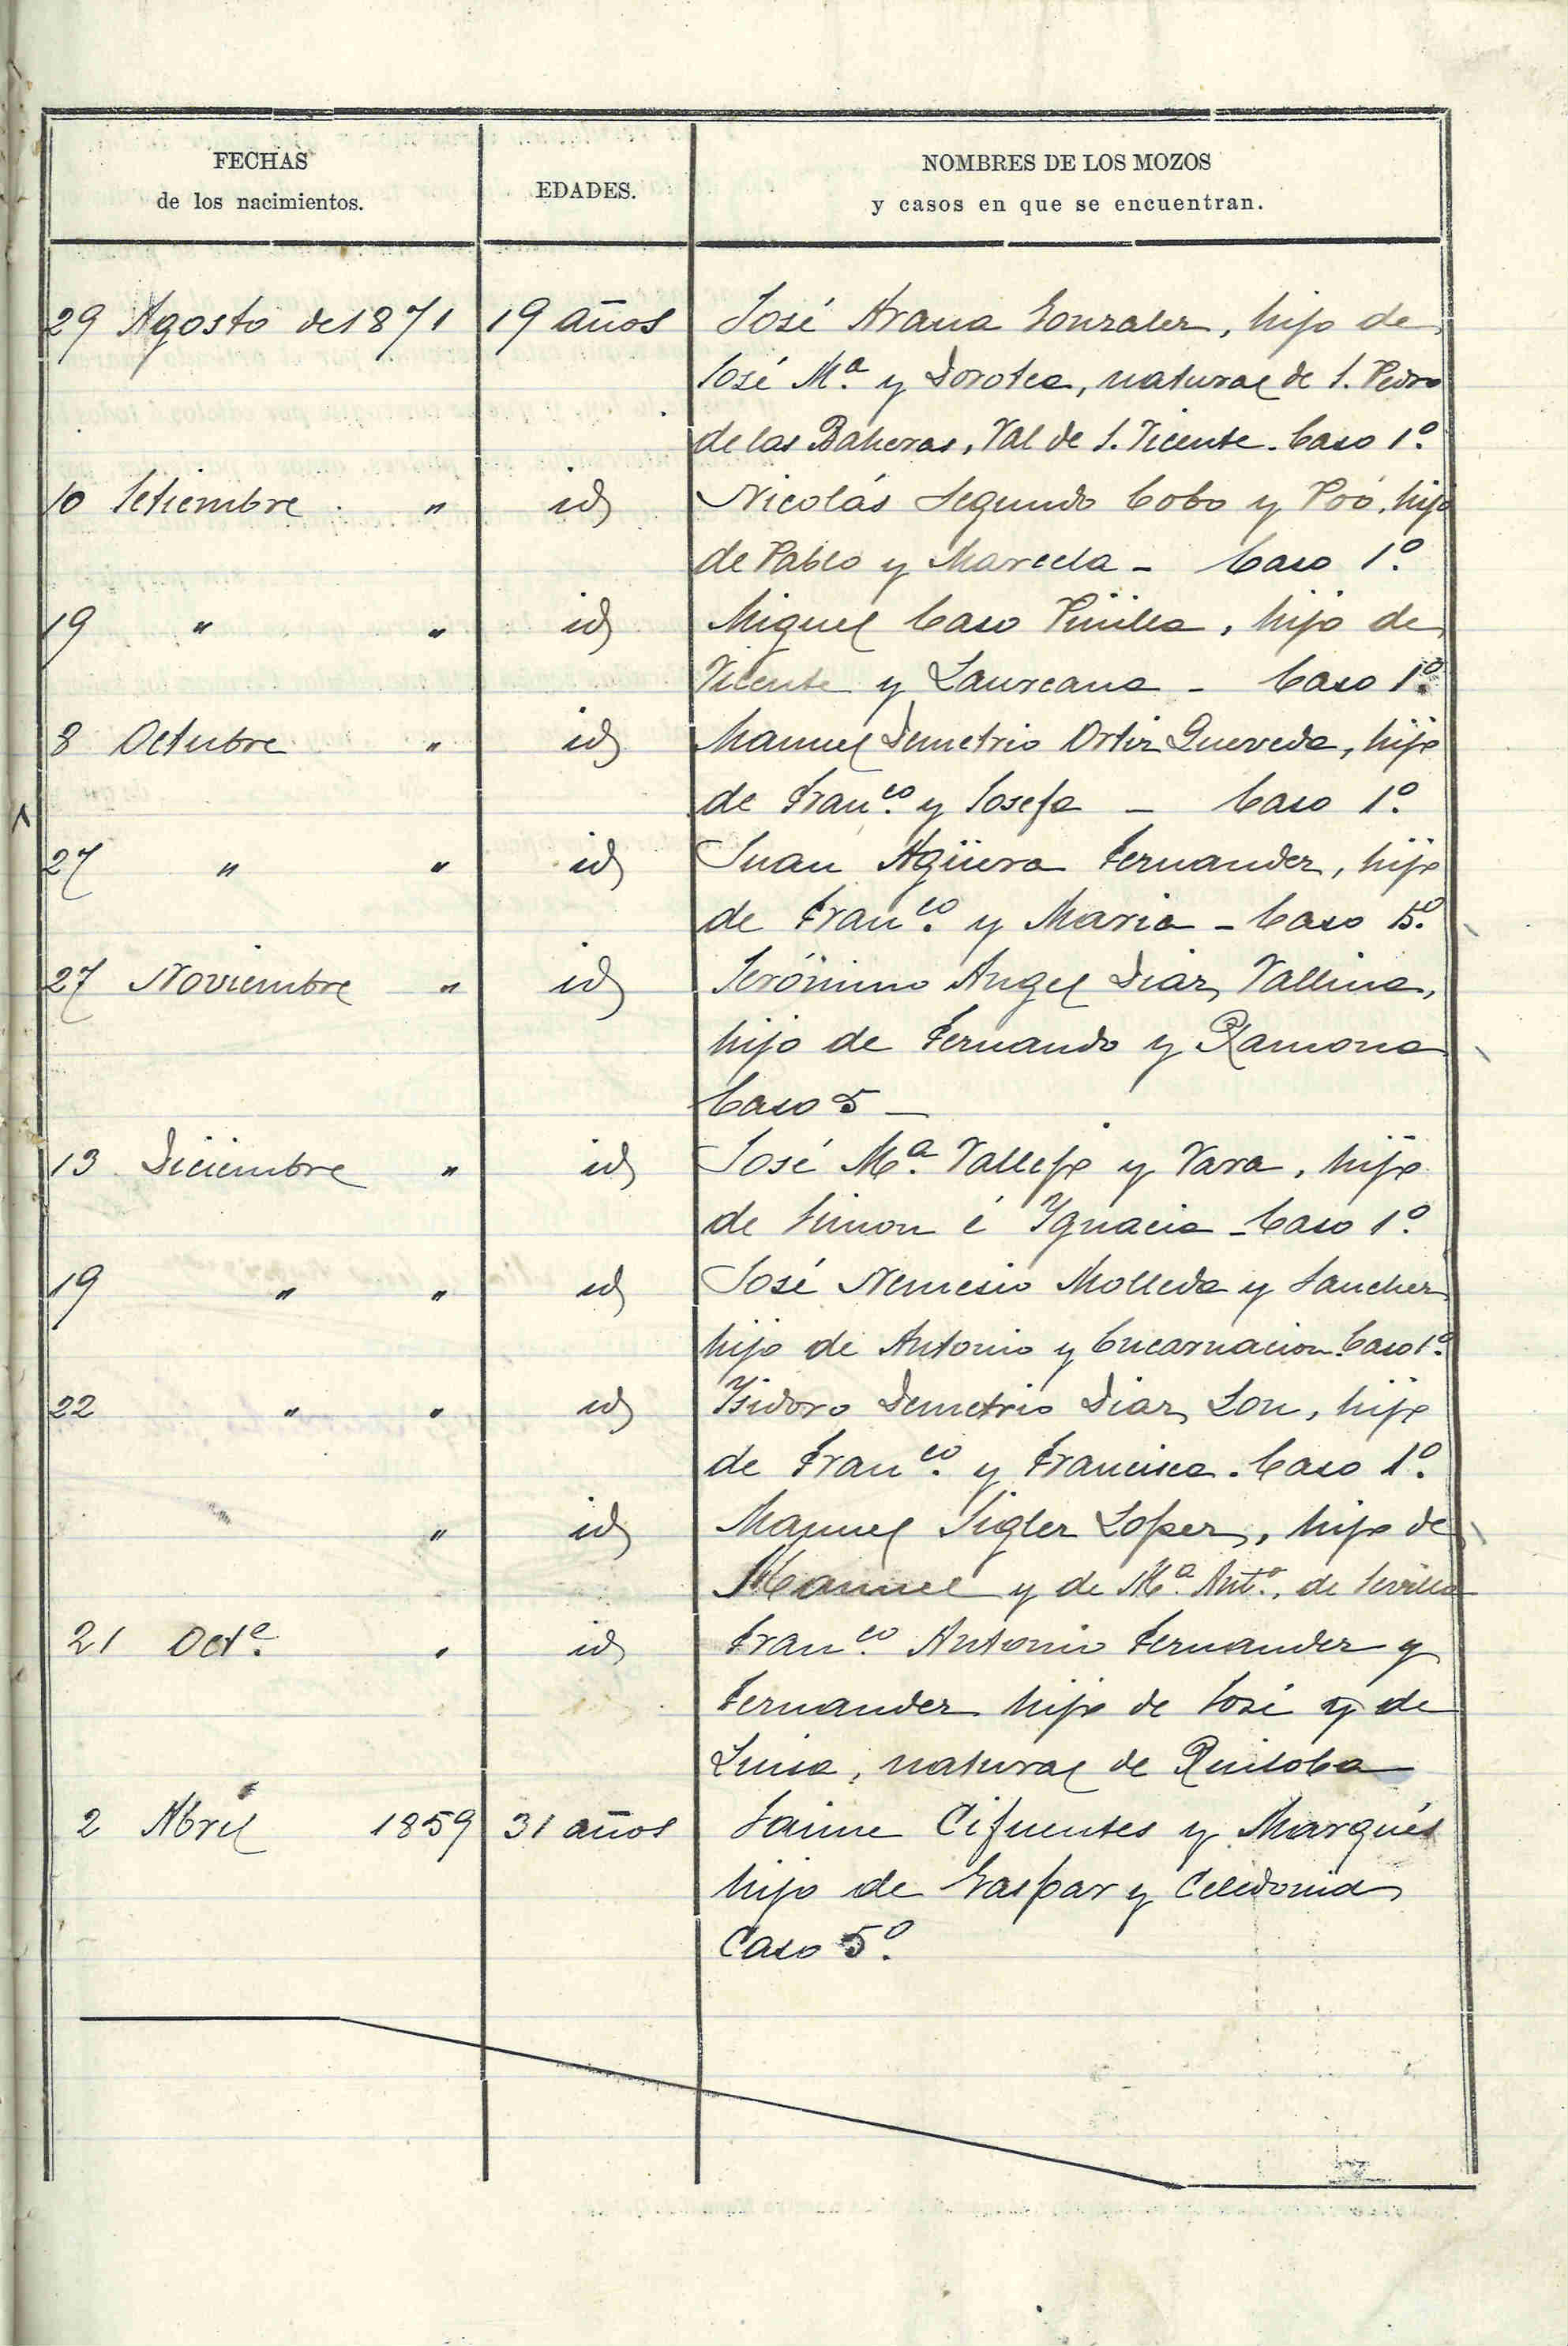 FECHAS
de los nacimientos.
EDADES.
NOMBRES DE LOS MOZOS
y casos en que se encuentran.
29 Agosto de 1871 19 años José Arana Gonzalez, hijo de
José Mª. y Dorotea, natural de S. Pedro
de las Baheras, Val de S. Vicente. Caso 1º.
10 Setiembre " id Nicolás Segundo Cobo y Poó, hijo
de Pablo y Marcela - Caso 1º.
19 " " id Miguel Caso Pinilla, hijo de
Vicente y Laureana - Caso 1º.
8 Octubre " id Manuel Demetrio Ortiz Quevedo, hijo
de Franco. y Josefa - Caso 1º.
27 " " id Juan Agüera Fernandez, hijo
de Franco. y Maria - Caso 5º.
27 Noviembre " id Jerónimo Angel Diaz Vallina,
hijo de Fernando y Ramona
Caso 5 -
13 Diciembre " id José Mª. Vallejo y Vara, hijo
de Simon é Ygnacia - Caso 1º.
19 " " id José Nemesio Molleda y Sanchez
hijo de Antonio y Encarnacion. Caso 1º.
22 " " id Ysidoro Demetrio Diaz Lon, hijo
de Franco. y Francisca. Caso 1º.
" id Manuel Sigler Lopez, hijo de
Manuel y de Mª. Antª. de Sevilla
21 Octe. " id Franco. Antonio Fernandez y
Fernandez hijo de José y de
Luisa, natural de Ruiloba
2 Abril 1859 31 años Jaime Cifuentes y Marqués
hijo de Gaspar y Celedonia
Caso 5º.